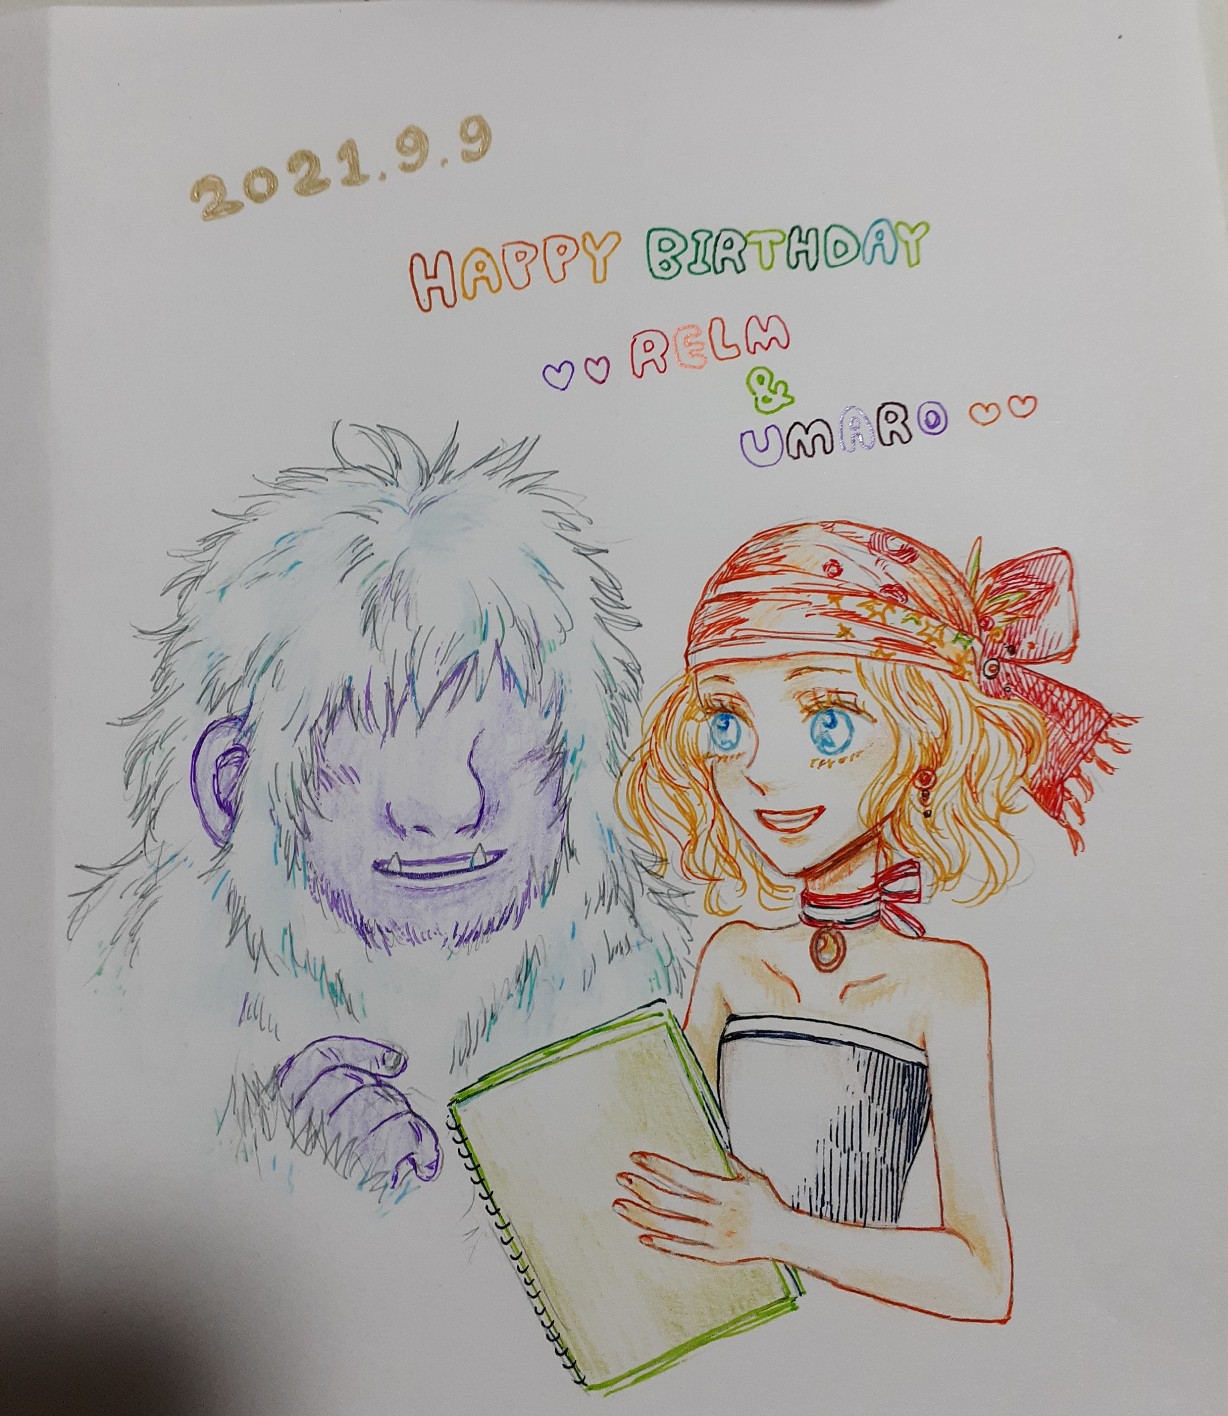 2021.9.9
HAPPY BIRTHDAY
♡♡ RELM
&
UMARO ♡♡